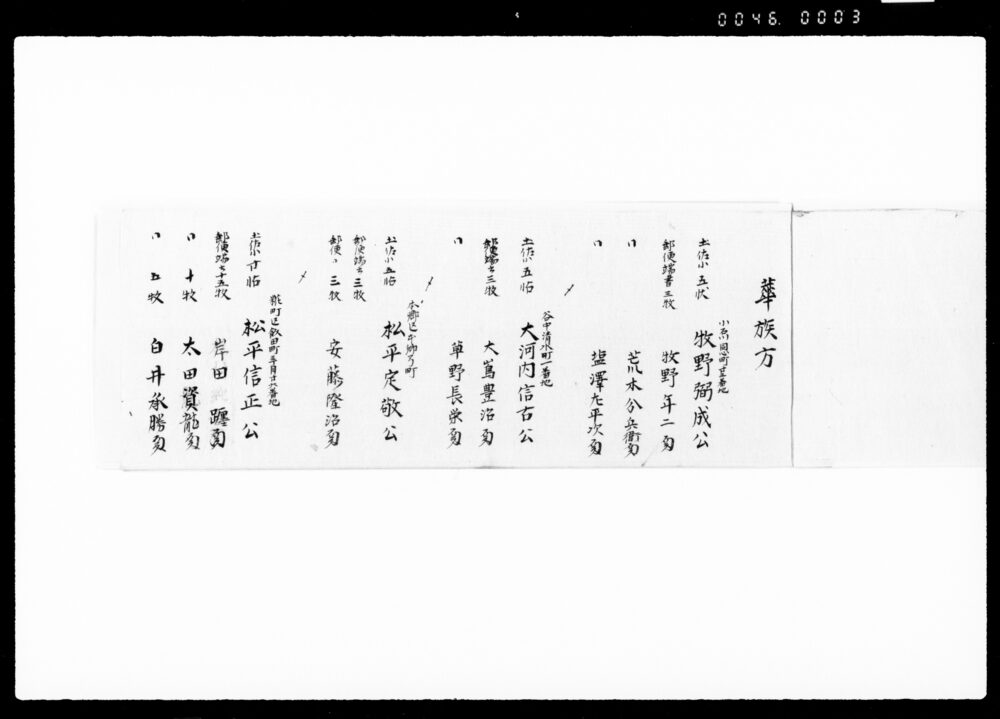 0046. 0003
華族方
小石川同心町廿五番地
土佐小五状 牧野弼成公
郵便端書三枚 牧野年二
〃 荒木分兵衛
〃 塩澤九平次
谷中清水町一番地
土佐小五帖 大河内信古公
郵便端書三枚 大嶌豊治
〃 草野長栄
本郷区
土佐小五帖 松平定敬公
郵便端書三枚
郵便〃三枚 安藤隆治
飯田町
土佐小廿帖 松平信正公
郵便端書十五枚 岸田
〃十枚 太田資龍
〃五枚 白井承勝